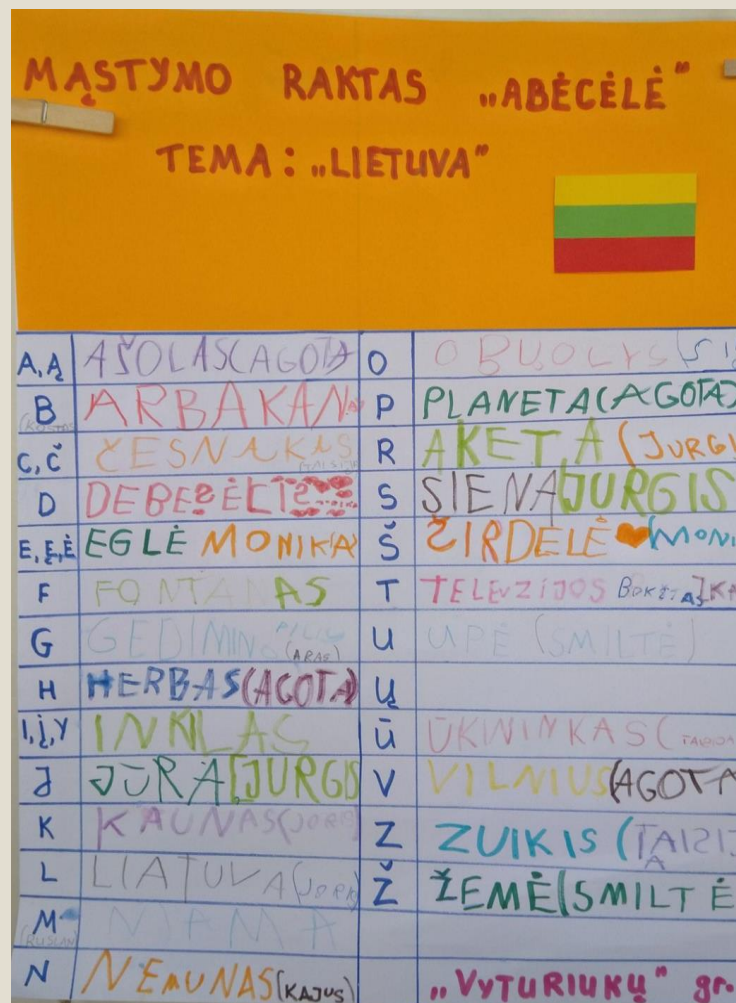 MĄSTYMO RAKTAS „ABĖCĖLĖ"
TEMA: „LIETUVA"
A,Ą AŠOLAS(AGOTA
B ARBAKAN
C,Č ČESNAKAS
D DEBESĖLIS
E,Ę,Ė EGLĖ MONIKA)
F FONTANAS
G GEDIMINO PILIS
(ARAS)
H HERBAS(AGOTA)
I,Į,Y INKLAS
J JŪRA(JURGIS
K KAUNAS(
L LIATUVA(
M MAMA
(RUSLAN)
N NEMUNAS(KAJUS)
O OBUOLYS
P PLANETA(AGOTA)
R AKETA (JURGI
S SIENA JURGIS
Š ŽIRDELĖ (MONI
T TELEVZIJOS
U UPĖ (SMILTĖ)
Ų
Ū ŪKININKAS(
V VILNIUS(AGOTA
Z ZUIKIS (TAISI
Ž ŽEMĖ(SMILTĖ
„VYTURIUKŲ" gr.